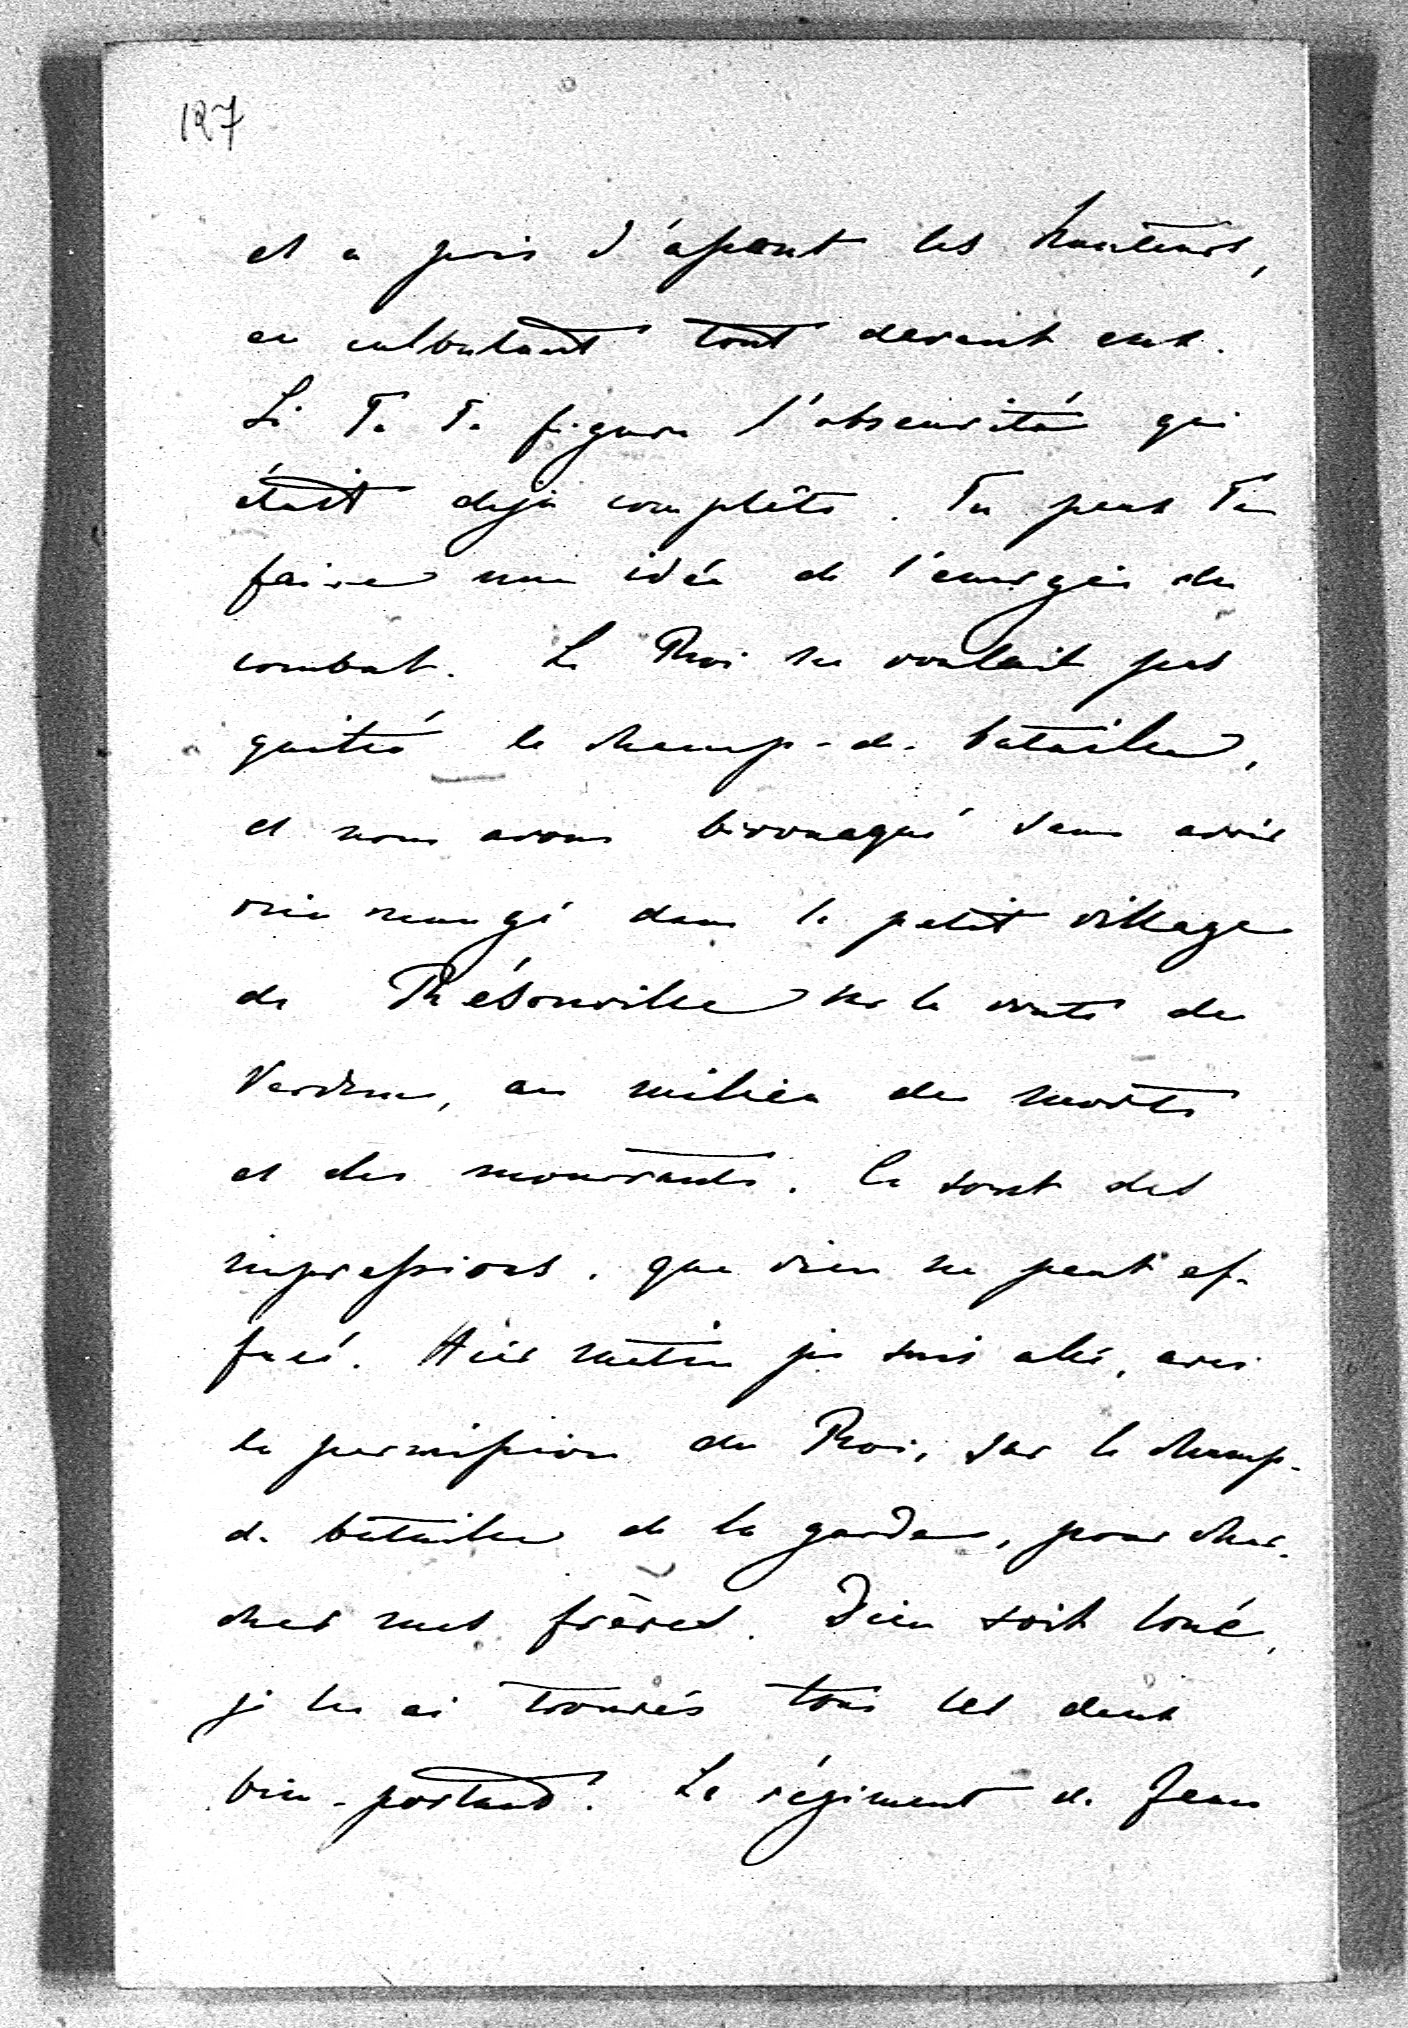 127
et a pris d'assaut les hauteurs,
en culbutant tout devant eux.
Si Tu Te figure l'obscurité qui
était deja complête. Tu peux T'en
faire une idée de l'energie du
combat. Le Roi ne voulait pas
quitté le champ-de-bataille,
et nous avons bivouaqué sans avoir
rien mangé dans le petit village
de Résonville sur la route de
Verdun, au milieu des morts
et des mourrants. Ce sont des
impressions, que rien ne peut ef-
facé. Hier matin je suis allé, avec
la permission du Roi, sur le champ-
de bataille de la garde, pour cher-
cher mes frères. Dieu soit loué,
je les ai trouvés tous les deux
bien-portant. Le régiment de Jean